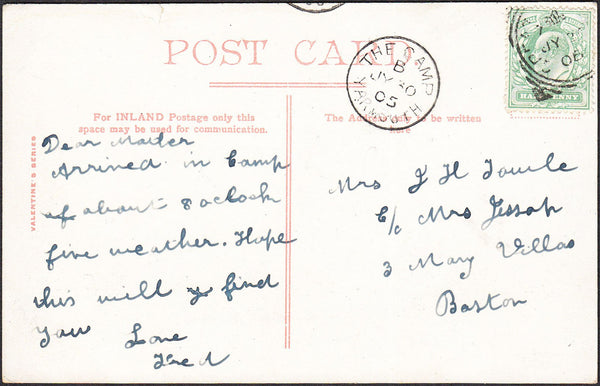 POST CARD
THE CAMP
B
JY 30
05
YARMOUTH
HALFPENNY
For INLAND Postage only this
space may be used for communication.
The Address only to be written
here
VALENTINE'S SERIES
Dear Mater
Arrived in Camp
at about 8 oclock
fine weather. Hope
this will find
you
Love
Fred
Mrs J H Towle
C/o Mrs Jessop
3 Mary Villas
Boston